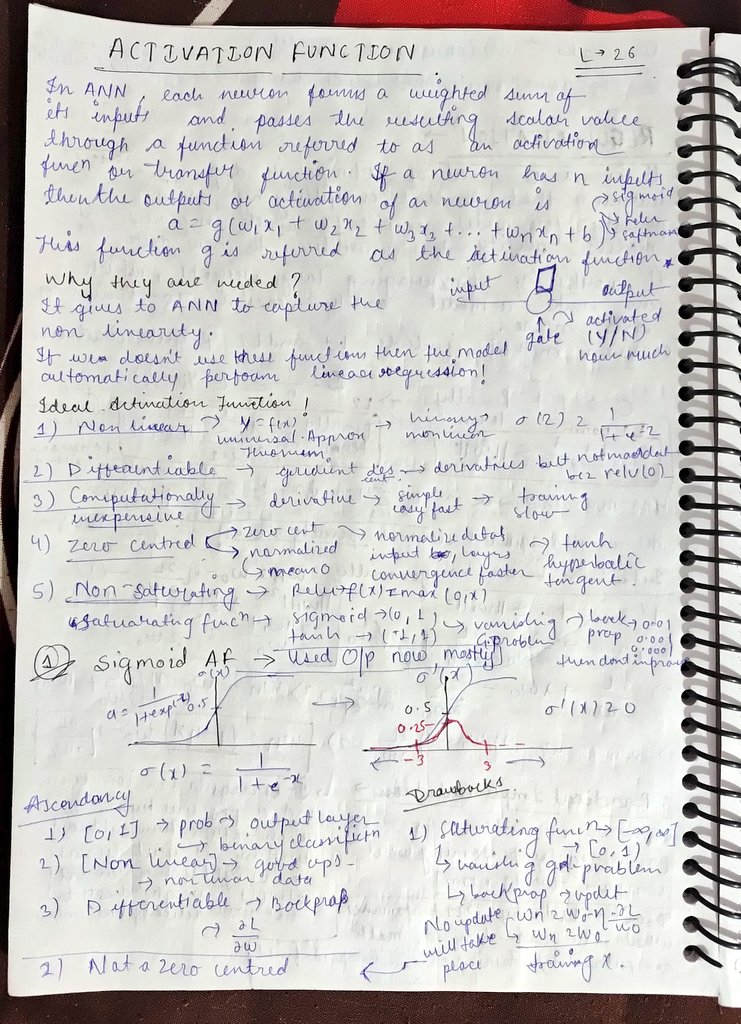 ACTIVATION FUNCTION
L → 26
In ANN, each neuron forms a weighted sum of
its inputs and passes the resulting scalar value
through a function referred to as an activation
funcn or transfer function. If a neuron has n inputs
then the outputs or activation of an neuron is
a = g(ω₁x₁ + ω₂x₂ + ω₃x₃ + ... + ωₙxₙ + b) → sigmoid → relu → softmax
This function g is referred as the activation function.
Why they are needed?
It gives to ANN to capture the
non linearity.
If we doesn't use these functions then the model
automatically perform linear regression!
input
output
gate
activated
(Y/N)
how much
Ideal Activation Function!
1) Non linear → y = f(x) → binary → σ(z) = 1/1+e^-z
universal Approx nonlinear
Theorem
2) Differentiable → gradient descent → derivatives but not mandat
bcz relu(0)
3) Computationally → derivative → simple → training
inexpensive easy fast slow
4) Zero centred → zero cent → normalize data → tanh
→ normalized input layers hyperbolic
→ mean 0 convergence faster tangent
5) Non-saturating → Relu → f(x) = max(0,x)
saturating funcⁿ → sigmoid → (0,1) → vanishing → back → 0.01
tanh → (-1,1) G. problem prop 0.001
0.0001
then dont improve
① Sigmoid AF → Used O/p now mostly
σ(x)
a = 1/1+exp(-z) 0.5
σ'(x)
0.5
0.25
-3
3
σ'(x) = 0
σ(x) = 1/1+e^-x
Ascendancy
1) [0,1] → prob → output layer
→ binary classificn
2) [Non linear] → good ops
→ non linear data
3) Differentiable → Backprop
→ ∂L/∂ω
Drawbacks
1) Saturating funcn → [-∞,∞]
→ [0,1)
→ vanishing gd problem
→ backprop → updat
No update
will take
place
ωn = ω₀ - η ∂L/ω₀
ωn = ω₀
training x.
2) Not a zero centred